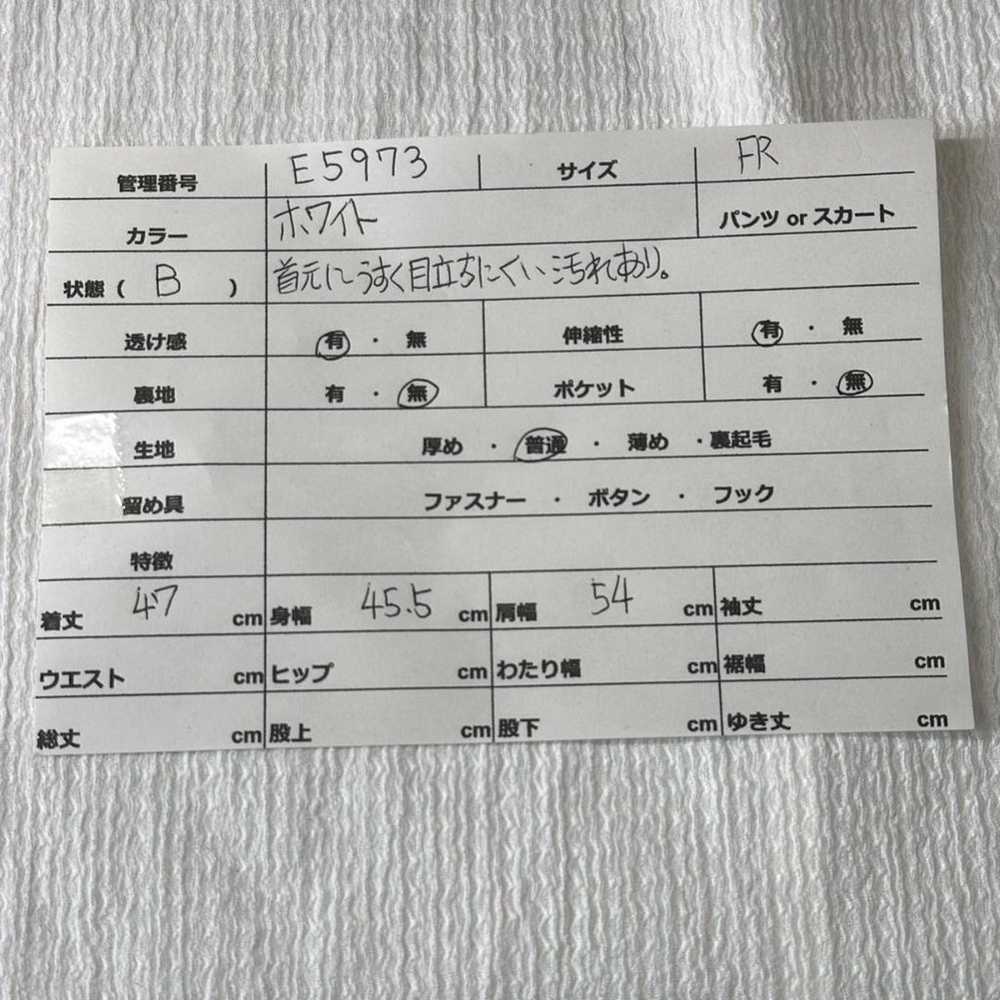 管理番号 E5973 サイズ FR
カラー ホワイト パンツ or スカート
状態( B ) 首元にうすく目立ちにくい汚れあり。
透け感 有 ・ 無 伸縮性 有 ・ 無
裏地 有 ・ 無 ポケット 有 ・ 無
生地 厚め ・ 普通 ・ 薄め ・裏起毛
留め具 ファスナー ・ ボタン ・ フック
特徴
着丈 47 cm 身幅 45.5 cm 肩幅 54 cm 袖丈 cm
ウエスト cm ヒップ cm わたり幅 cm 裾幅 cm
総丈 cm 股上 cm 股下 cm ゆき丈 cm